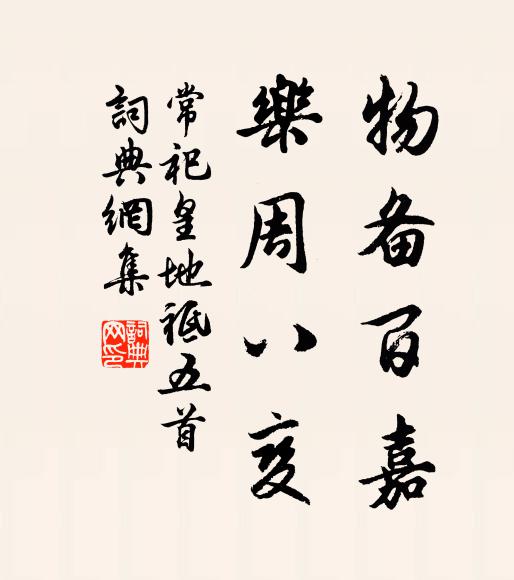 物备百嘉
樂周八变
常祀皇地祇五首
詞典網集
詞典
网印